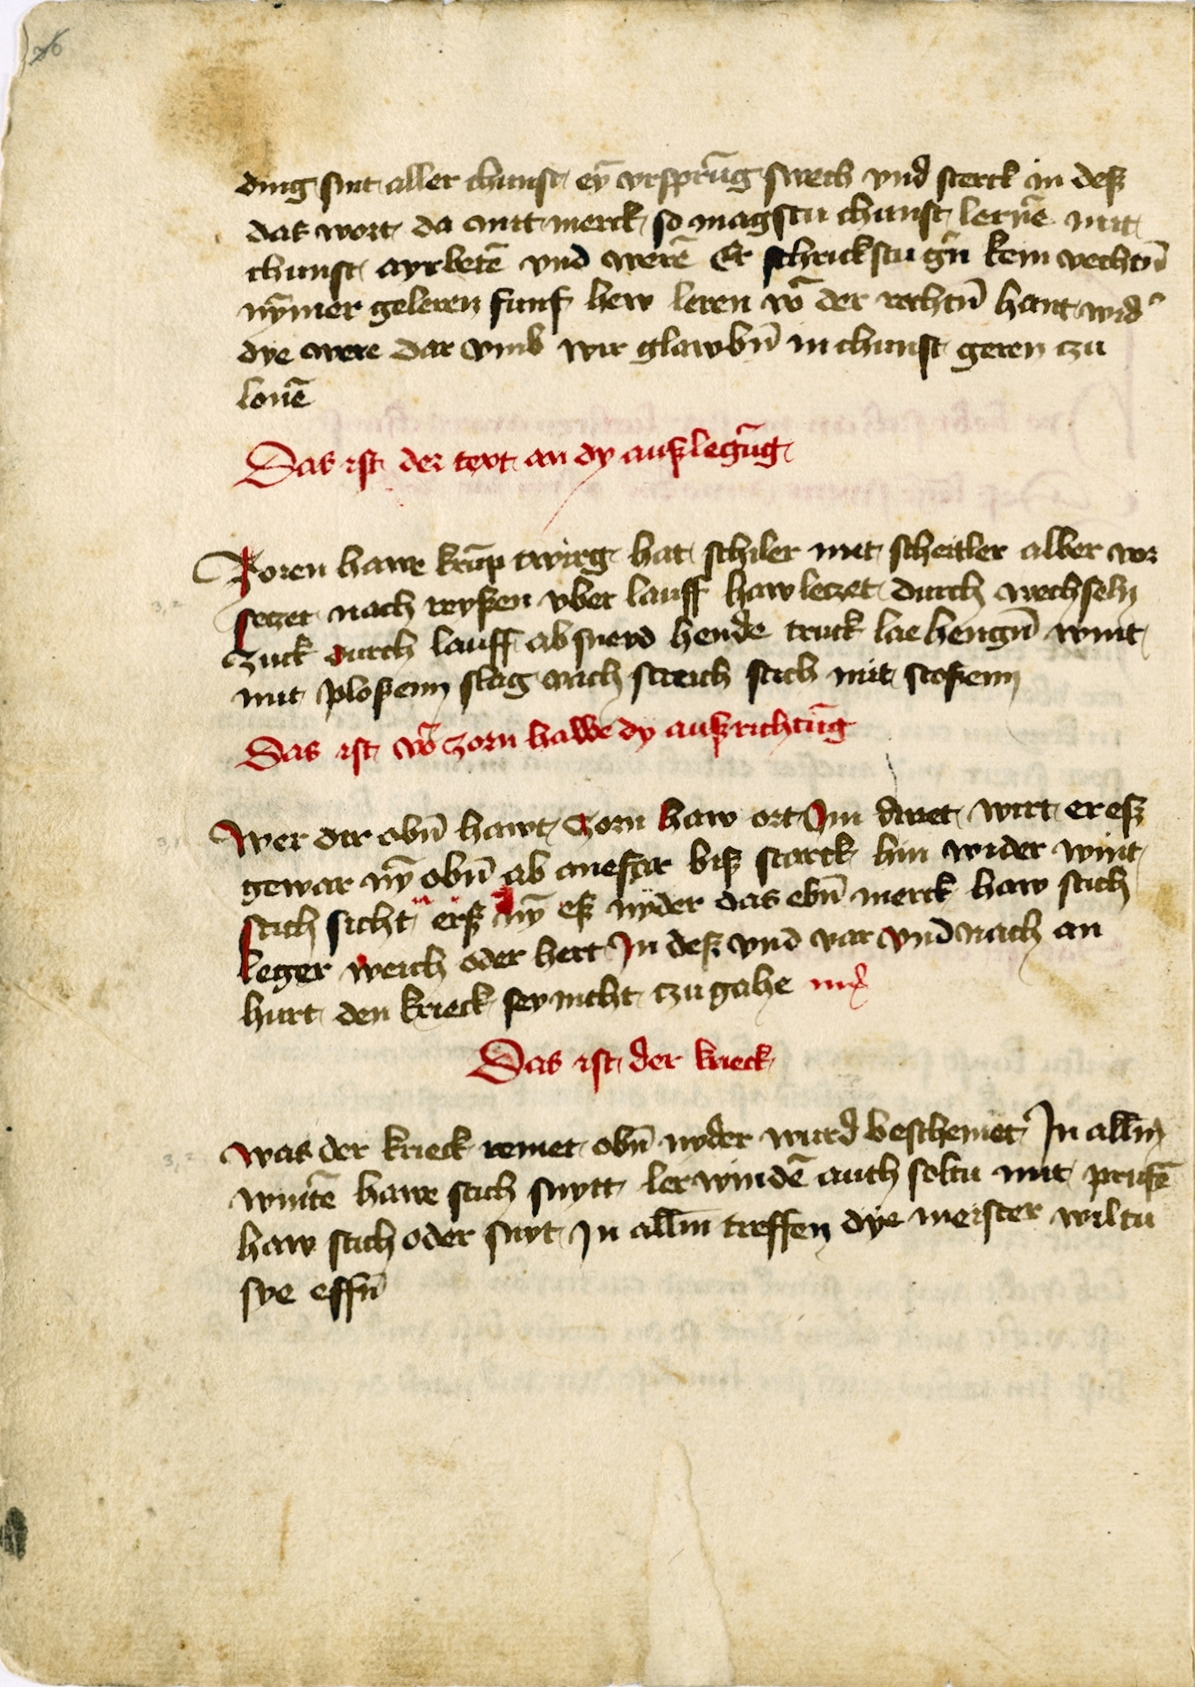 ding sint aller chunst eÿ vrsprūg swech vnd sterck in deß
das wort da mit merck so magstu chunst lernē mit
chunst ayrbetē vnd werē Er schrickstu gn̄ kein vechtn̄
nÿmer geleren funf hew leren vō der rechtn̄ hant wid'
dye were dar vmb wir glawbn̄ in chunst geren czu
lonē
Das ist der text an dy außlegūg
Zoren hawe krūp twirg hat schiler mit scheitler alber vor
seczet nach reyßen vber lauff haw leczet durch wechseln
Zuck durch lauff ab sneyd hende truck lae hengn̄ wint
mit ploßenn slag vach streich stich mit stoßenn
Das ist vō zorn hawe dy außrichtūg
Wer dir obn̄ hawt Zorn haw ort Im dreet wirt er eß
gewar nÿ obn̄ ab anefar biß starck hin wider wint
stich sicht erß nÿ eß nyder das ebn̄ merck haw stich
leger weich oder hert In deß vnd var vnd nach an
hurt den krieck sey nicht czu gahe
Das ist der krieck
Was der krieck remet obn̄ nyder wurd beschemet In alln̄
wintē hawe stich snytt ler windē auch soltu mit prufē
haw stich oder snyt In alln̄ treffen dye meister wiltu
sye effn̄